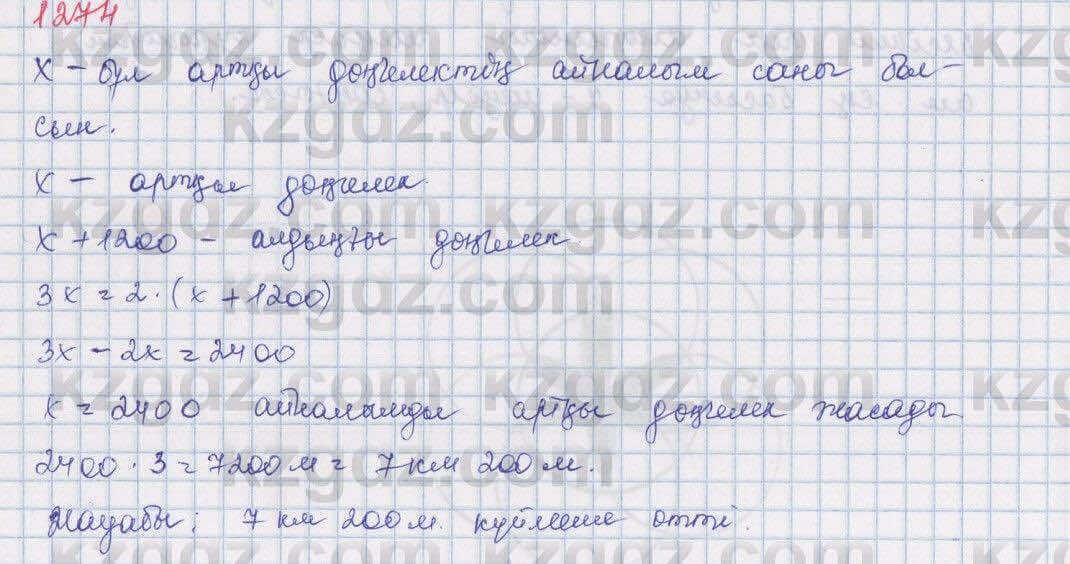 1274
х – бұл артқы доңғелектің айналым саны бол-
сын.
х – артқы доңғелек.
х + 1200 – алдыңғы доңғелек.
3х = 2 · (х + 1200)
3х – 2х = 2400
х = 2400 айналымды артқы доңғелек жасады
2400 · 3 = 7200 м = 7 км 200 м.
Жауабы: 7 км 200 м. күймеше өтті.
kzgdz.com